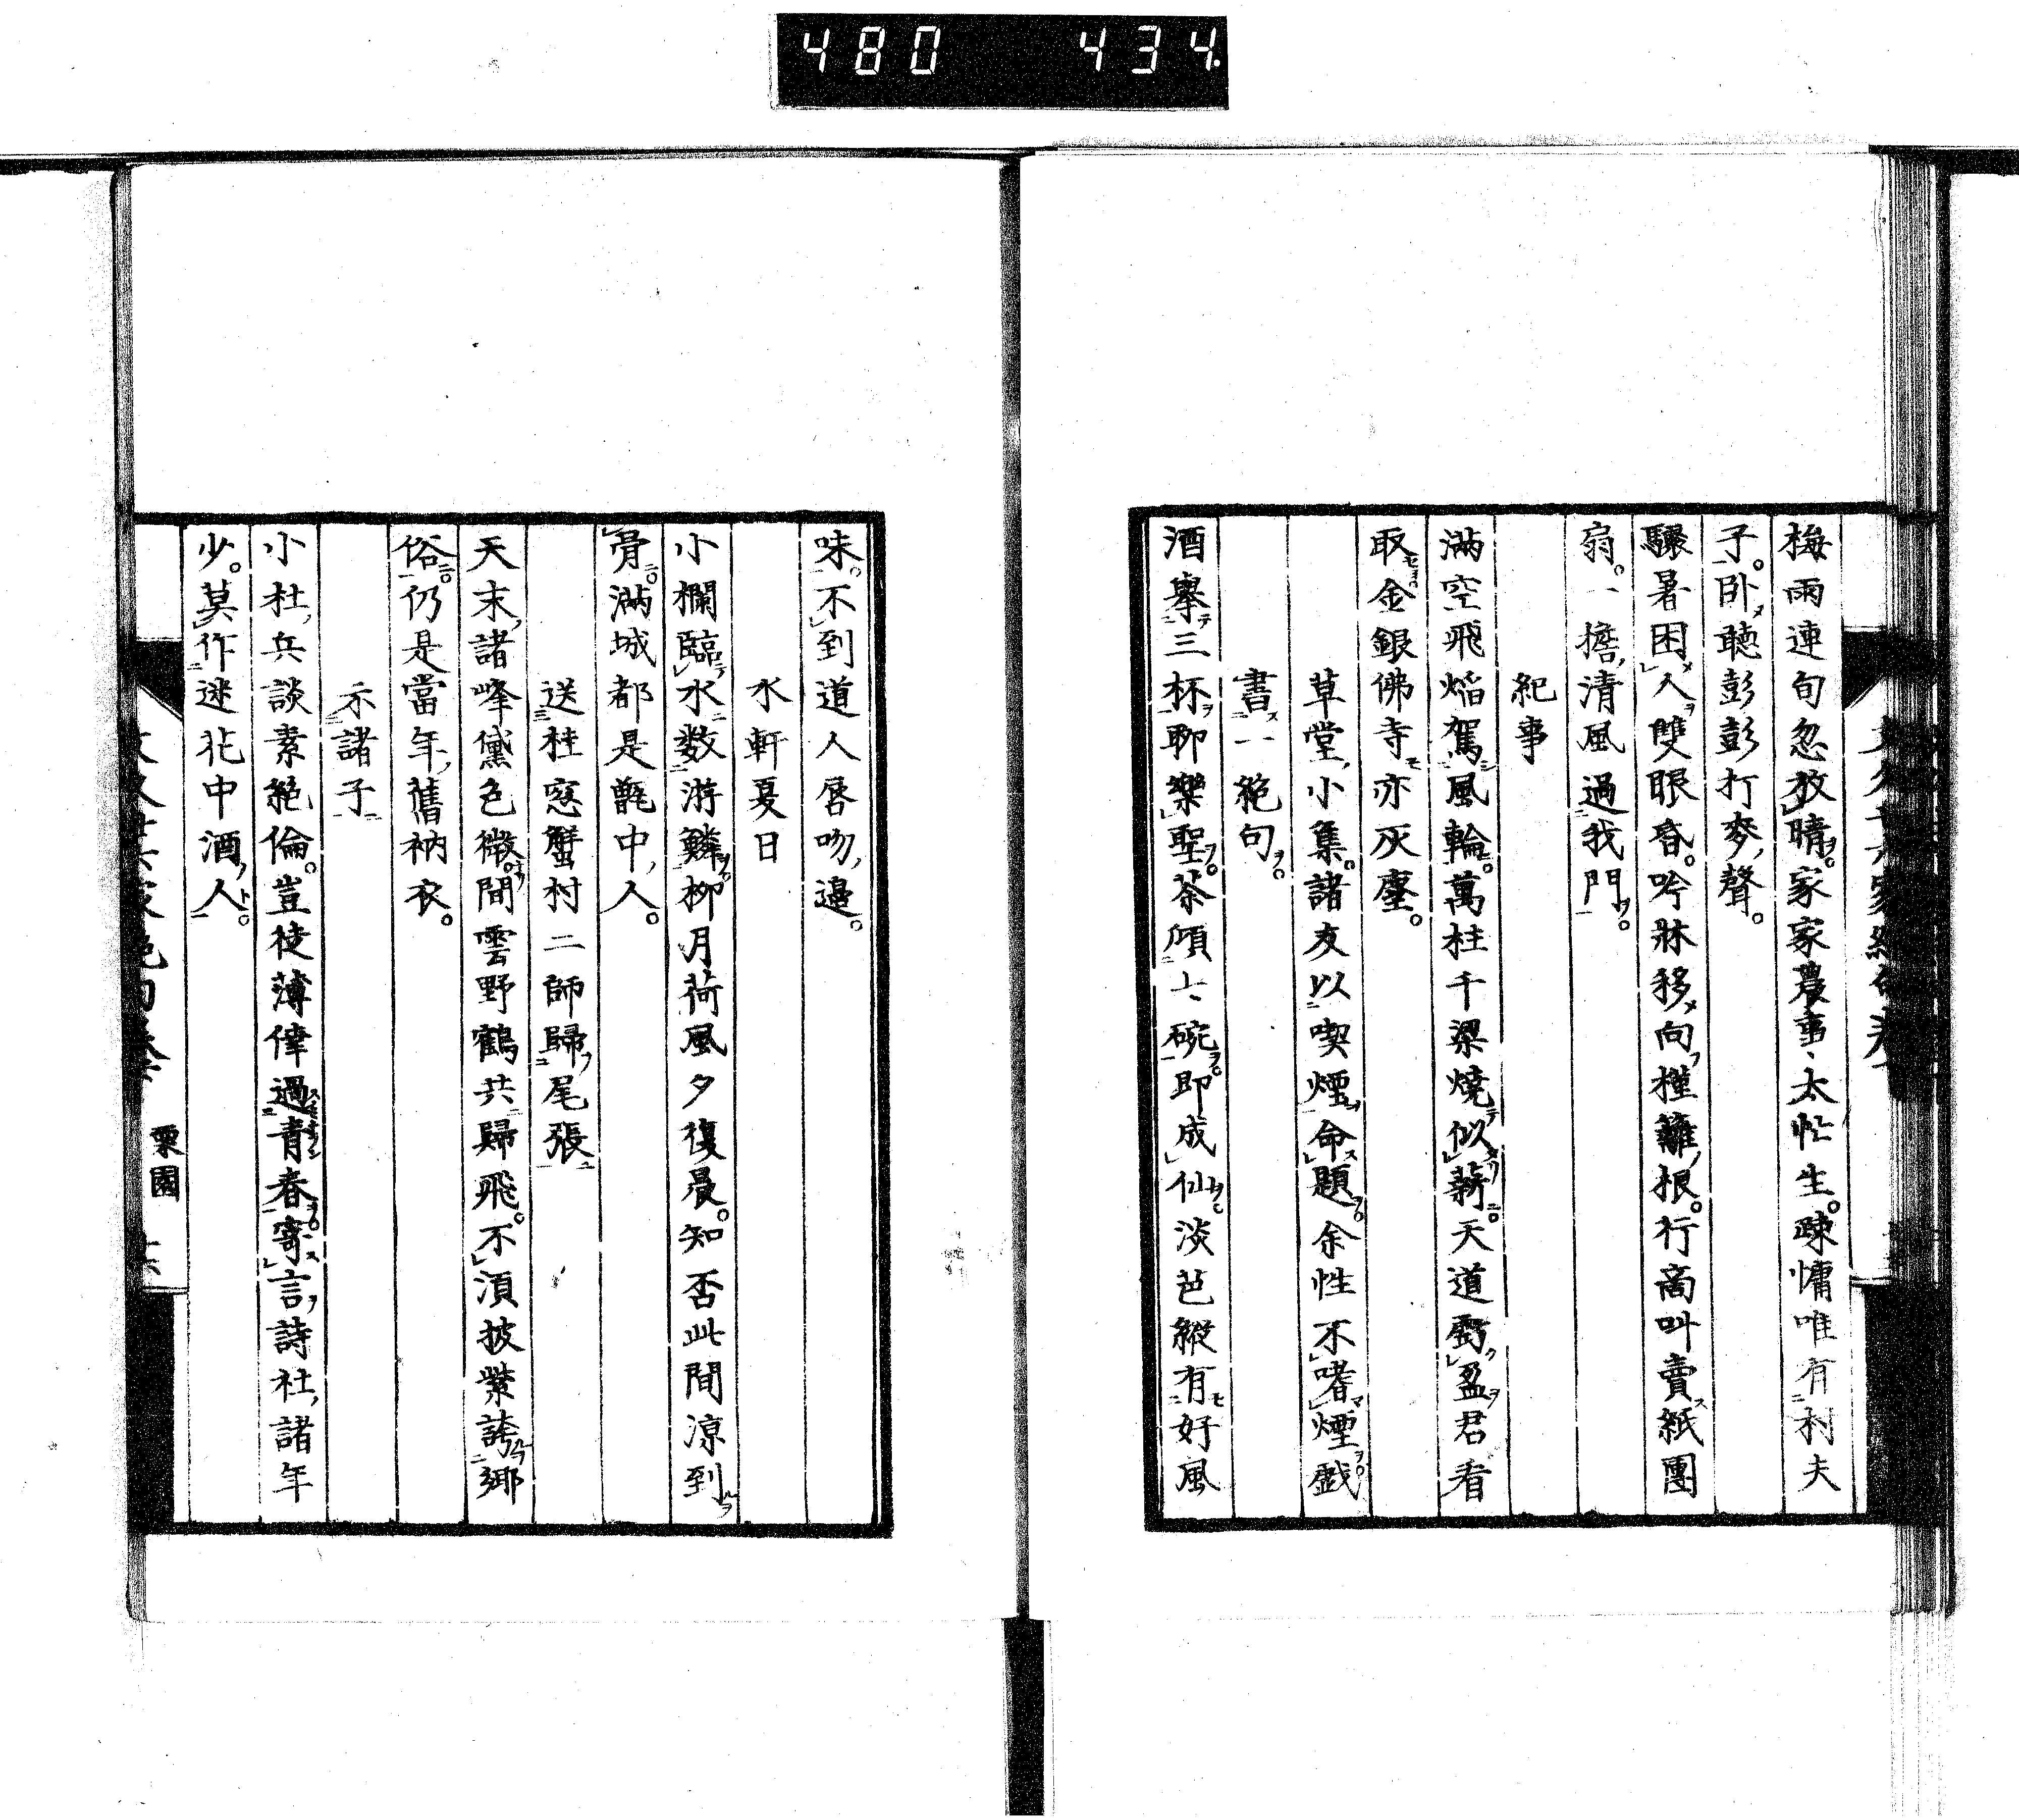 480 434.
梅雨連旬忽放晴家家農事太忙生疎慵唯有村夫
子臥聽彭彭打麥聲
驟暑困人雙眼昏吟牀移向槿籬根行商叫賣紙團
扇一擔清風過我門
紀事
滿空飛焔駕風輪萬柱千梁燒似薪天道虧盈君看
取金銀佛寺亦灰塵
草堂小集諸友以喫煙命題余性不嗜煙戲
書一絕句
酒擧三杯聊樂聖茶傾七碗即成仙淡芭縱有好風
味不到道人唇吻邊
水軒夏日
小欄臨水数游鱗柳月荷風夕復晨知否此間凉到
骨滿城都是甑中人
送桂窓蟹村二師歸尾張
天末諸峰黛色微間雲野鶴共歸飛不須披紫誇鄉
俗仍是當年舊衲衣
示諸子
小杜兵談素絕倫豈徒薄倖過青春寄言詩社諸年
少莫作迷花中酒人
栗園